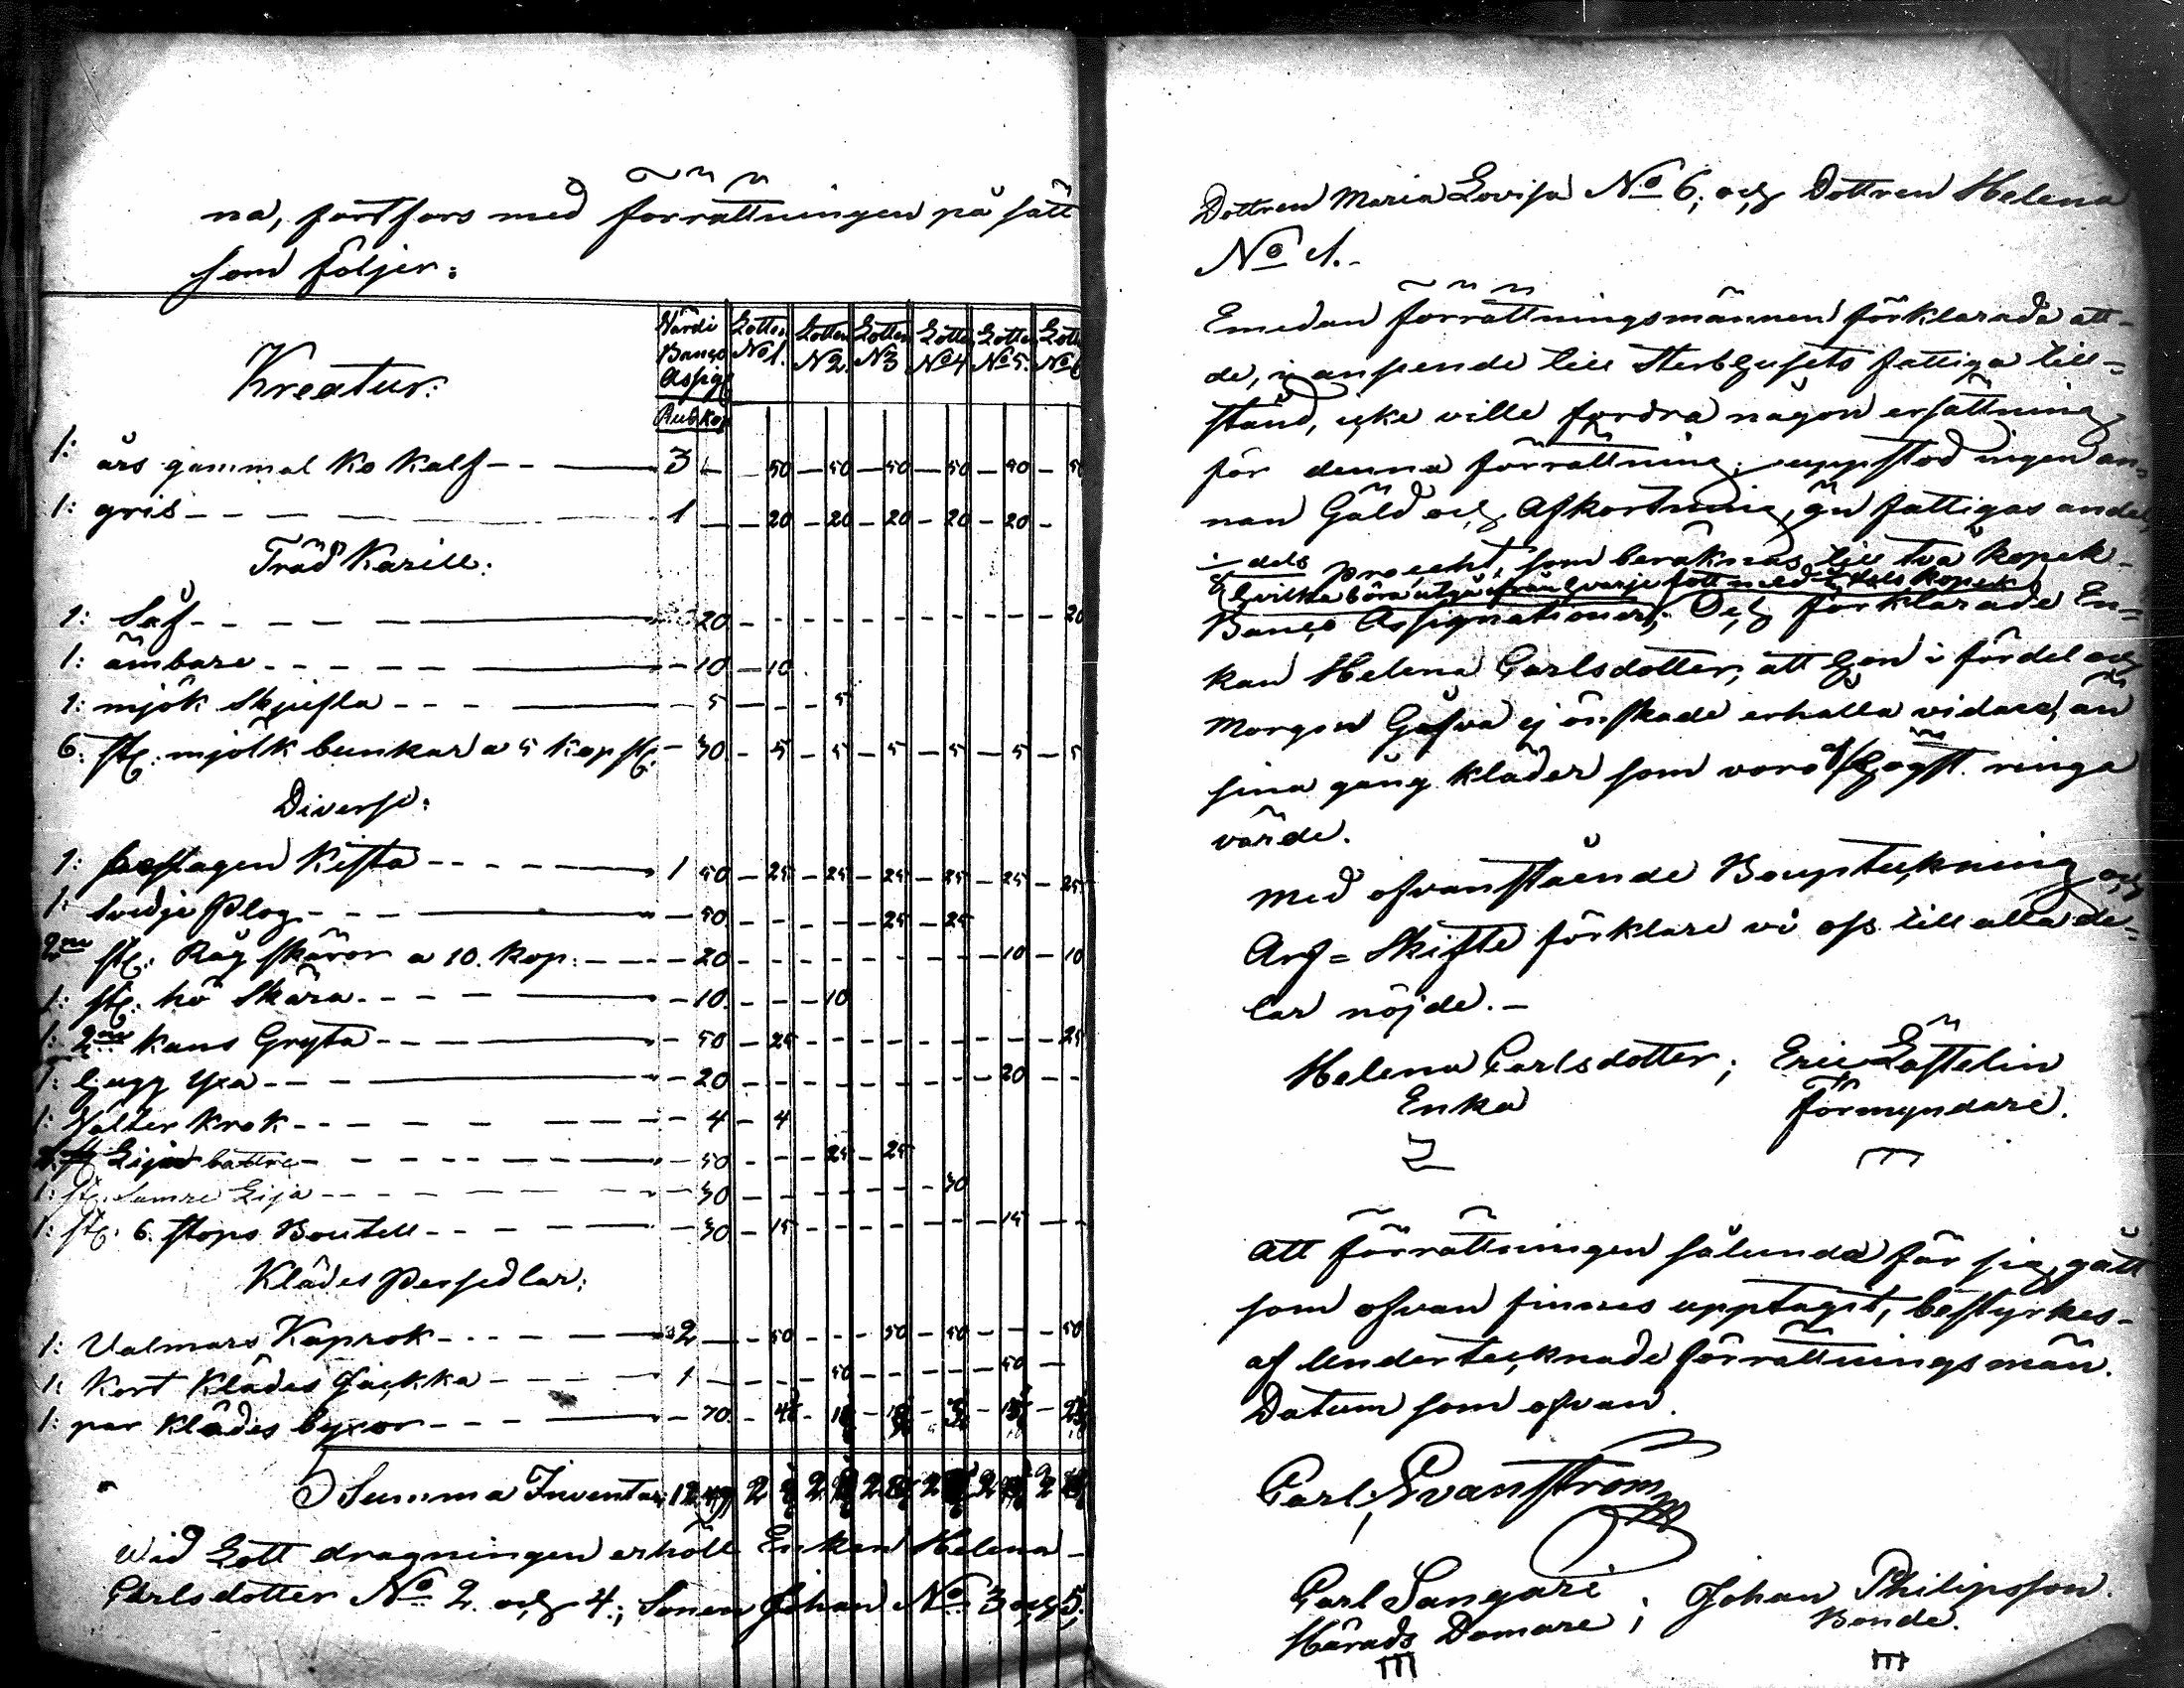 na, fortfors med förrättningen på sätt
som följer:
Värdi Banco Assign Lotten No 1. Lotten N 2. Lotten N 3 Lotten No 4 Lotten No 5. Lotten No 6
Rub kop
Kreatur:
1: års gammal Ko Kalf - - 3 - 50 - 50 - 50 - 50 - 50 - 50
1: gris - - - 1 - 20 - 20 - 20 - 20 - 20 -
Träd Kärill:
1: Såf - - - 20 - - - 20
1: ämbare - - - 10 - 10
1: mjök Skjufla - - - 5 - - - 5
6. st: mjölk bunkar a 5 kop st: - 30 - 5 - 5 - 5 - 5 - 5 - 5
Diverse:
1: Kista - - - 1 50 - 25 - 25 - 25 - 25 - 25 - 25
1: Svedje Plog - - - 50 - - - 25 - 25
2ne st: Råg skäror a 10. kop: - - - 20 - - - 10 - 10
1: st: hö Skära - - - 10 - - - 10
1: 2ne kans Gryta - - - 50 - 25 - - - 25
1: hugg yxa - - - 20 - - - 20 - -
1: Valter krok - - - 4 - 4
Lijor battre - - - 50 - - - 25 - 25
1: st: Samre Lija - - - 30 - - - 30
1: st: 6. stops Boutell - - - 30 - 15 - - - 15 - -
Klädes Persedlar:
1: Valmars Kaprok - - - 2 - - 50 - - - 50 - 50 - - - 50
1: Kort Klädes Jackka - - - 1 - - - 50 - - - 50 -
1: par klädes byxor - - - 70.
Summa Inventar 12
Wid Lott dragningen erhöll Enkan Helena
Carlsdotter No 2. och 4.; Sonen Johan No 3 och 5.;
Dottren Maria Lovisa No 6; och Dottren Helena
No 1.-
Emedan förrättningsmännen förklarade att-
de, i anseende till Sterbhusets fattiga till=
stånd, icke ville fordra någon ersättning
för denna förrättning; uppstod ingen an=
nan Gäld och Afkortning, än fattigas andel
dels procent, som beräknas till två kopek-
hvilka böra utgå ifrån hvarje lott med dels kopek
Banco Assignationer; Och förklarade En=
kan Helena Carlsdotter, att hon i fördel och
morgon Gåfva ej önskade erhålla vidare, än
sina gång kläder som voro af högst. ringa
värde.
Med ofvanstående Bouptekning och
Arf= Skifte förklare vi oss till alla de=
lar nöjde.-
Helena Carlsdotter; Eric Löftelin
Enka Förmyndare.
Att förrättningen sålunda för sig gått
som ofvan finnes upptagit, bestyrkes-
af Undertecknade förrättningsmän.
Datum som ofvan.
Carl Svanström
Carl Sangari ; Johan Philipsson.
Härads Domare Bonde.